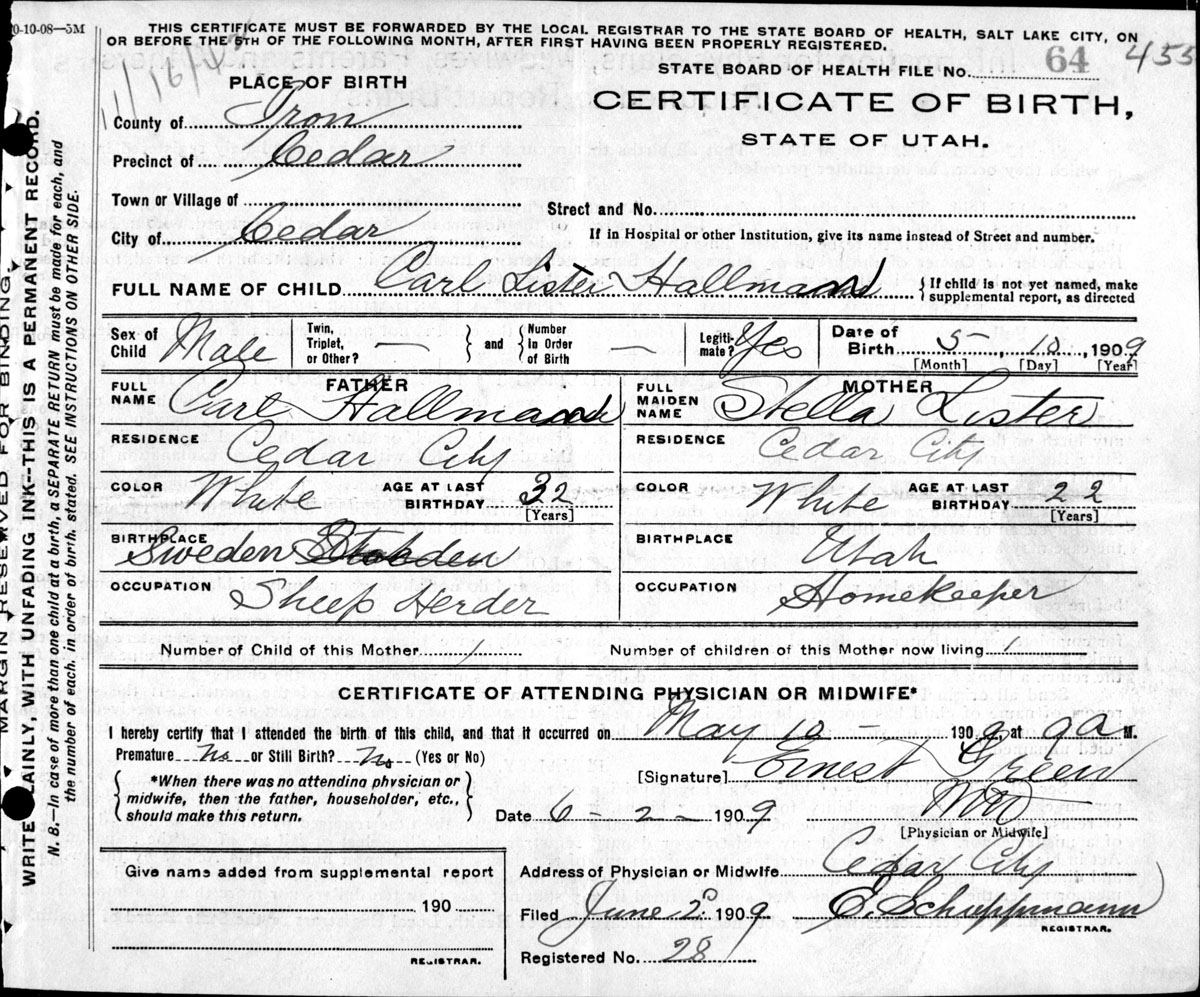 0-10-08—5M
THIS CERTIFICATE MUST BE FORWARDED BY THE LOCAL REGISTRAR TO THE STATE BOARD OF HEALTH, SALT LAKE CITY, ON
OR BEFORE THE 5TH OF THE FOLLOWING MONTH, AFTER FIRST HAVING BEEN PROPERLY REGISTERED.
455
STATE BOARD OF HEALTH FILE No. 64
CERTIFICATE OF BIRTH,
STATE OF UTAH.
PLACE OF BIRTH
County of Iron
Precinct of Cedar
Town or Village of
Street and No.
City of Cedar
If in Hospital or other Institution, give its name instead of Street and number.
FULL NAME OF CHILD Carl Lister Hallman
{ If child is not yet named, make
supplemental report, as directed
Sex of Child Male
Twin, Triplet, or Other? —
} and { Number In Order of Birth —
Legiti-mate? Yes
Date of Birth 5- 10, 1909
[Month] [Day] [Year]
FATHER
FULL NAME Carl Hallman
RESIDENCE Cedar City
COLOR White AGE AT LAST BIRTHDAY 32
[Years]
BIRTHPLACE Sweden
OCCUPATION Sheep Herder
MOTHER
FULL MAIDEN NAME Stella Lister
RESIDENCE Cedar City
COLOR White AGE AT LAST BIRTHDAY 22
[Years]
BIRTHPLACE Utah
OCCUPATION Homekeeper
Number of Child of this Mother 1
Number of children of this Mother now living 1
CERTIFICATE OF ATTENDING PHYSICIAN OR MIDWIFE*
I hereby certify that I attended the birth of this child, and that it occurred on May 10 — 1909, at 9 a M.
Premature No or Still Birth? No (Yes or No)
{ *When there was no attending physician or
midwife, then the father, householder, etc.,
should make this return. }
[Signature] Ernest Green
MD
[Physician or Midwife]
Date 6 - 2 - 1909
Address of Physician or Midwife Cedar City
Give name added from supplemental report
190
REGISTRAR.
Filed June 2 1909 E. Schoppmann
REGISTRAR.
Registered No. 28
MARGIN RESERVED FOR BINDING.
WRITE PLAINLY, WITH UNFADING INK--THIS IS A PERMANENT RECORD.
N. B.—In case of more than one child at a birth, a SEPARATE RETURN must be made for each, and
the number of each, in order of birth, stated. SEE INSTRUCTIONS ON OTHER SIDE.